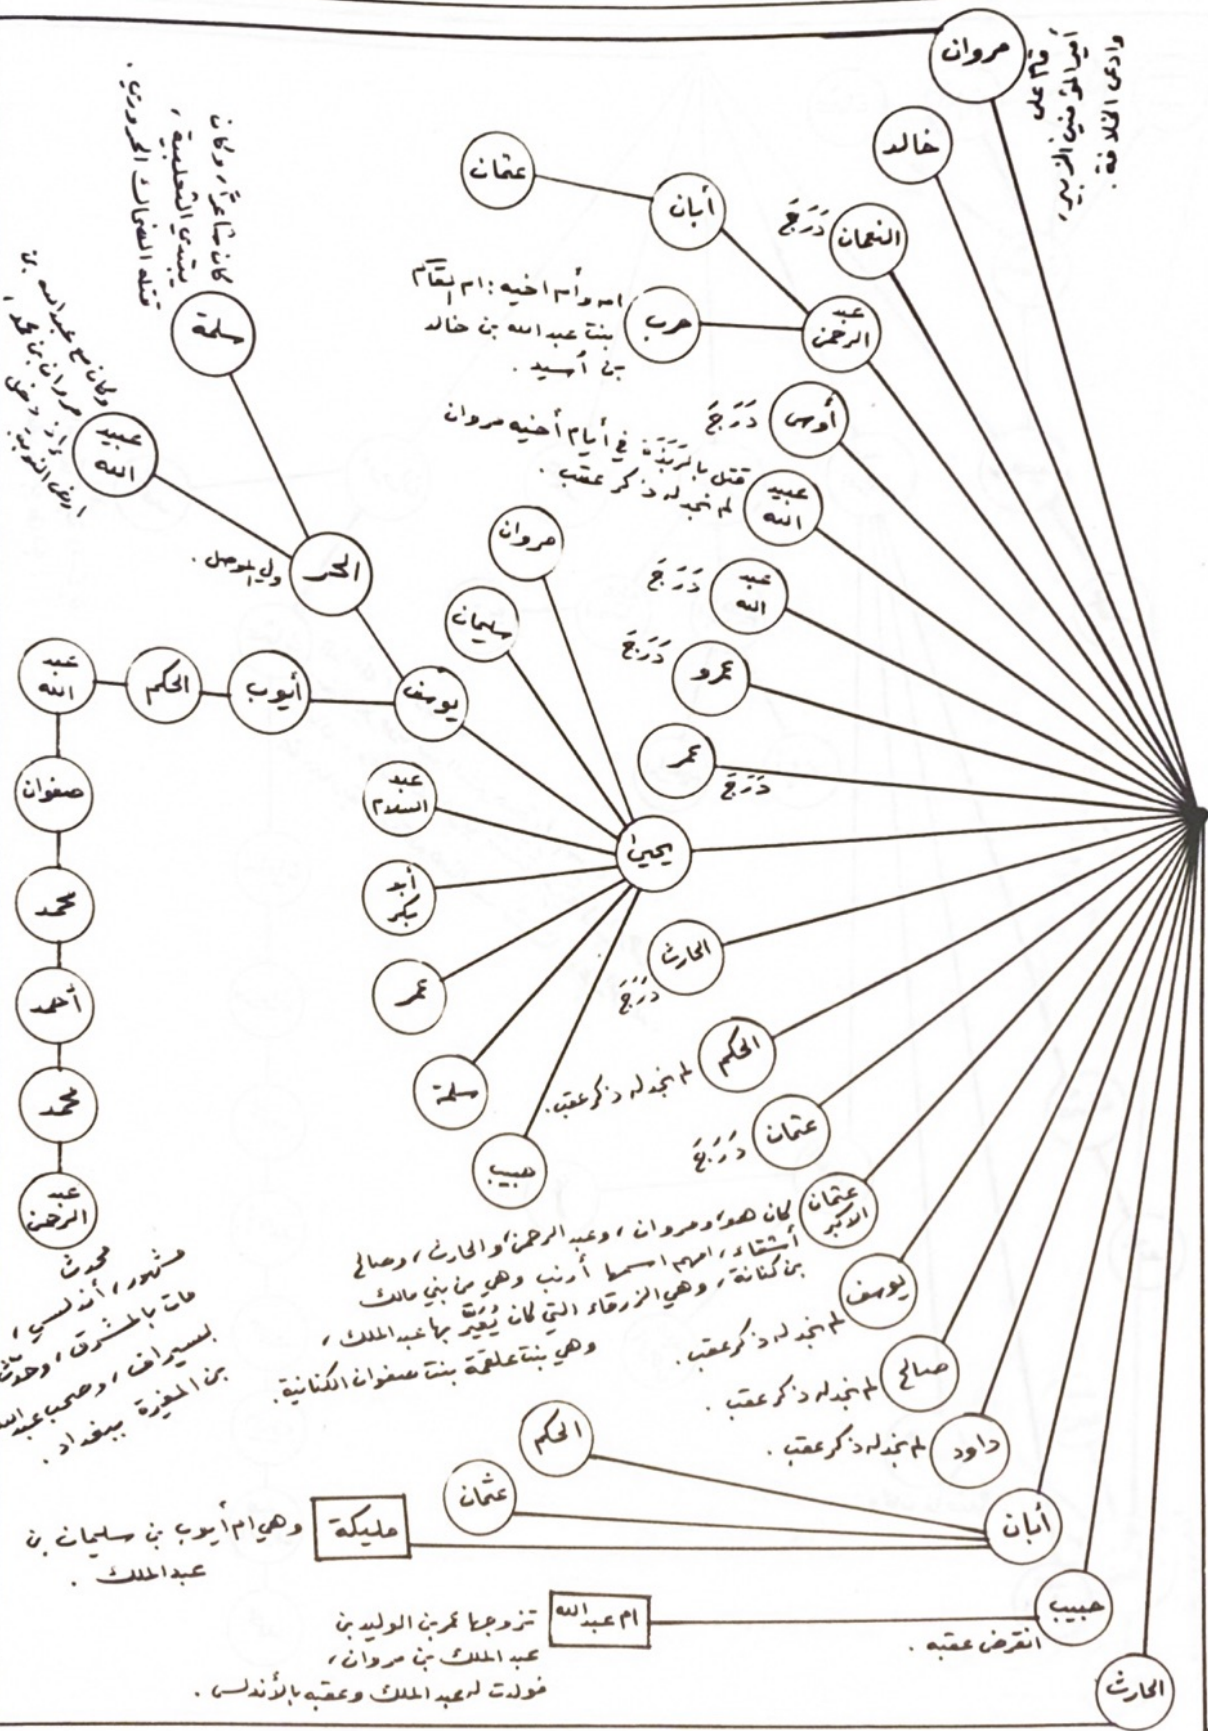 مروان
قام على
أمير المؤمنين الزبير،
وادعى الخلافة.
خالد
النعمان
دَرَجَ
عبد
الرحمن
أبان
عثمان
حرب
امه وأم اخيه: ام القاسم
بنت عبد الله بن خالد
بن أسيد.
أوس
دَرَجَ
عبيد
الله
قتل بالرَبَذَة في أيام أخيه مروان
لم نجد له ذكر عقب.
عبد
الله
دَرَجَ
عمرو
دَرَجَ
عمر
دَرَجَ
يحيى
مروان
سليمان
يوسف
الحر
ولي الموصل.
سلمة
كان شاعرًا، وكان
الثعلبية،
قتله الضحاك الحروري.
عبيد
الله
وكان مع عبد الله بن
مروان بن محمد،
إذ دخل
ارض النوبة.
أيوب
الحكم
عبد
الله
صفوان
محمد
أحمد
محمد
عبد
الرحمن
محدث
مشهور، أندلسي،
مات بالمشرق، وحدث
بسيراف، وصحب عبد الله
بن المغيرة ببغداد.
عبد
السلام
أبو
بكر
عمر
سلمة
حبيب
الحارث
دَرَجَ
الحكم
لم نجد له ذكر عقب.
عثمان
دَرَجَ
عثمان
الاكبر
كان هو، ومروان، وعبد الرحمن، والحارث، وصالح
أشقاء، امهم اسمها أرنب وهي من بني مالك
بن كنانة، وهي الزرقاء التي كان يُعَيَّر بها عبد الملك،
وهي بنت علقمة بنت صفوان الكنانية.
يوسف
لم نجد له ذكر عقب.
صالح
لم نجد له ذكر عقب.
داود
لم نجد له ذكر عقب.
أبان
الحكم
عثمان
مليكة
وهي ام أيوب بن سليمان بن
عبد الملك.
حبيب
انقرض عقبه.
ام عبد الله
تزوجها عمر بن الوليد بن
عبد الملك بن مروان،
فولدت له عبد الملك وعقبه بالأندلس.
الحارث